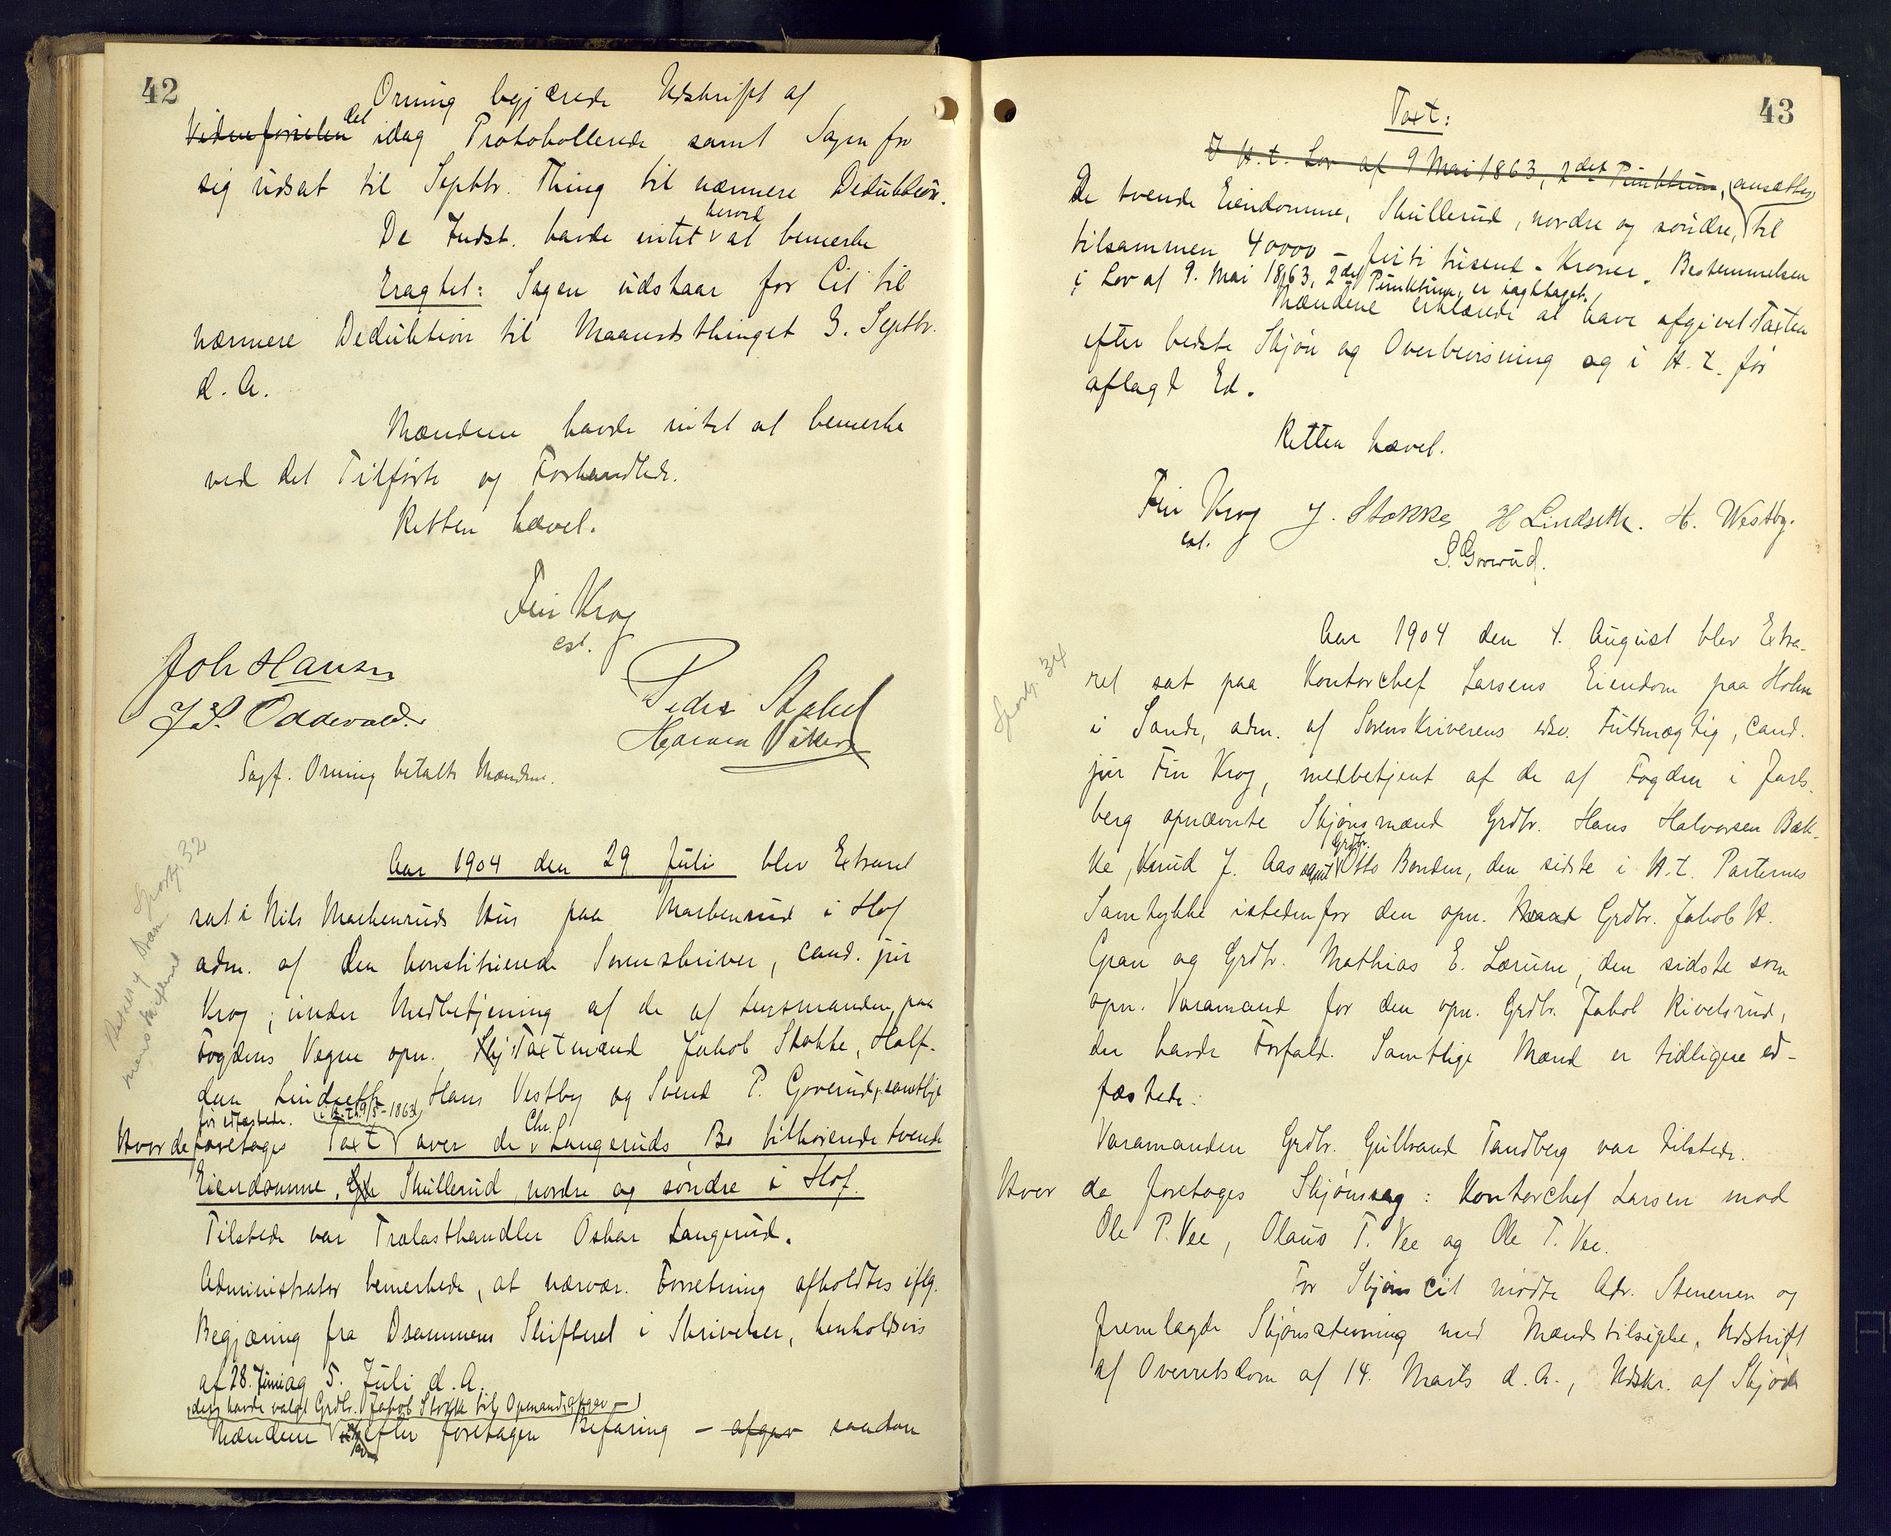 42
Orning begjærede Udskrift af
Vidneførselen det idag Protokollerede samt Sagen for
sig udsat til Septbr. Thing til nærmere Deduktion.
De Indst. havde intet herved at bemerke
Eragtet: Sagen udstaar for Cit til
nærmere Deduktion til Maanedsthinget 3. Septbr.
d. A.
Mændene havde intet at bemerke
ved det Tilførte og Forhandlede.
Retten hævet.
Fin Krog
cst.
Joh Hansen
Peder Stabel
J. S. Oddevald
Sagf. Orning betalte Mændene.
Spors. 32
Aar 1904 den 29 Juli blev Extraret
sat i Nils Markeruds Hus paa Markerud i Hof
adm. af den konstituerede Sorenskriver, cand. jur
Krog, under Medbetjening af de af Lensmanden paa
Fogdens Vegne opn. Skj Taxtmænd Jakob Stokke, Half-
dan Lindseth, Hans Vestby og Svend P. Goverud, samtlige
før edfæstede. i H. t. L 9/5-1863
Hvor de foretoges Taxt over de Chr. Langeruds Bo tilhørende tvende
Eiendomme, Skullerud, nordre og søndre i Hof.
Tilstede var Trælasthandler Oskar Langerud.
Administrator bemerkede, at nærvær. Forretning afholdtes iflg.
Begjæring fra Drammens Skifteret i Skrivelser, henholdsvis
af 28. Juni og 5. Juli d. A.
der havde valgt Grdbr. Jakob Stokke til Opmand, afgav
Mændene efter foretagen Befaring – afgav saadan
43
Taxt:
I H. t. Lov af 9 Mai 1863, 2det Punktum, ansættes
De tvende Eiendomme, Skullerud, nordre og søndre, til
tilsammen 40000 – firti tusend – Kroner. Bestemmelsen
i Lov af 9. Mai 1863, 2det Punktum, er iagttaget.
Mændene erklærede at have afgivet Taxten
efter bedste Skjøn og Overbevisning og i H. t. før
aflagt Ed.
Retten hævet.
Fin Krog J. Stokke H Lindseth. H. Westby.
cst.
S. Goverud.
Spors. 34
Aar 1904 den 4. August blev Extra-
ret sat paa Kontorchef Larsens Eiendom paa Holm
i Sande, adm. af Sorenskriverens edsv. Fuldmægtig, cand.
jur Fin Krog, medbetjent af de af Fogden i Jarls-
berg opnævnte Skjønsmænd Grdbr. Hans Halvorsen Bak-
ke, Knud J. Aas samt Grdbr. Otto Bonden, den sidste i H. t. Parternes
Samtykke istedenfor den opn. Grdbr. Jakob H.
Gran og Grdbr. Mathias E. Lærum, den sidste som
opn. Varamand for den opn. Grdbr. Jakob Rivelsrud,
der havde Forfald. Samtlige Mænd er tidligere ed-
fæstede.
Varamanden Grdbr. Gulbrand Tandberg var tilstede.
Hvor da foretoges Skjønssag: Kontorchef Larsen mod
Ole P. Vee, Olaus T. Vee og Ole T. Vee.
For Skjønscit mødte Adv. Stenersen og
fremlagde Skjønsstevning med Mændstilsigelse, Udskrift
af Overretsdom af 14. Marts d. A., Udskr. af Skjøde